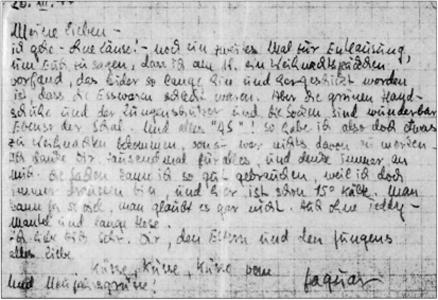 20. XII. 44
Meine Lieben -
ich gehe - ohne Läuse! - noch ein zweites Mal zur Entlausung,
um Euch zu sagen, dass ich am 18. ein Weihnachtspäckchen
vorfand, das leider so lange hin und hergeschickt worden
ist, dass die Esswaren schlecht waren. Aber die grünen Hand-
schuhe und der Lungenschützer und die Socken sind wunderbar
Ebenso der Schal. Und alles "45"! so habe ich also doch etwas
zu Weihnachten bekommen, sonst war nichts davon zu merken -
Ich danke Dir tausendmal für alles, und denke immer an
mit. Die Sachen kann ich so gut gebrauchen, weil ich doch
immer draussen bin, und hier ist schon 15° Kälte. Man
kann, man glaubt es gar nicht. Auch ohne Teddy-
Mantel und lange Hose.
Ich liebe Dich sehr. Dir, den Eltern und den Jungens
alles Liebe
Küsse, Küsse, Küsse vom
und Neujahrsgrüsse! Jaguar